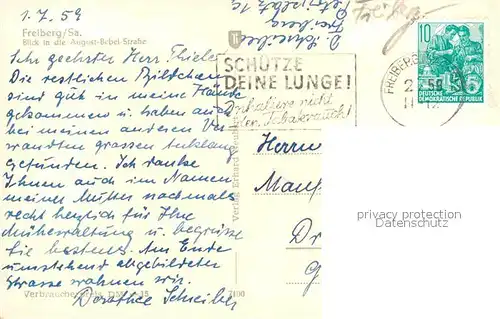 1.7.59
Freiberg/Sa.
Blick in die August-Bebel-Straße
Sehr geehrter Herr Thiele!
Die restlichen Bildchen
sind gut in meine Hände
gekommen u. haben auch
bei meinen anderen Ver-
wandten grossen Anklang
gefunden. Ich danke
Ihnen auch im Namen
meiner Mutter nochmals
recht herzlich für Ihre
Mühewaltung u. begrüsse
Sie bestens. Am Ende
umstehend abgebildeter
Strasse wohnen wir.
Dorothee Schreiber
Verbraucherpreis DM
Verlag Erhard
D. Schreiber
Freiberg
SCHÜTZE
DEINE LUNGE!
Inhaliere nicht
den Tabakrauch!
FREIBERG
10
DEUTSCHE
DEMOKRATISCHE REPUBLIK
Herrn
privacy protection
Datenschutz